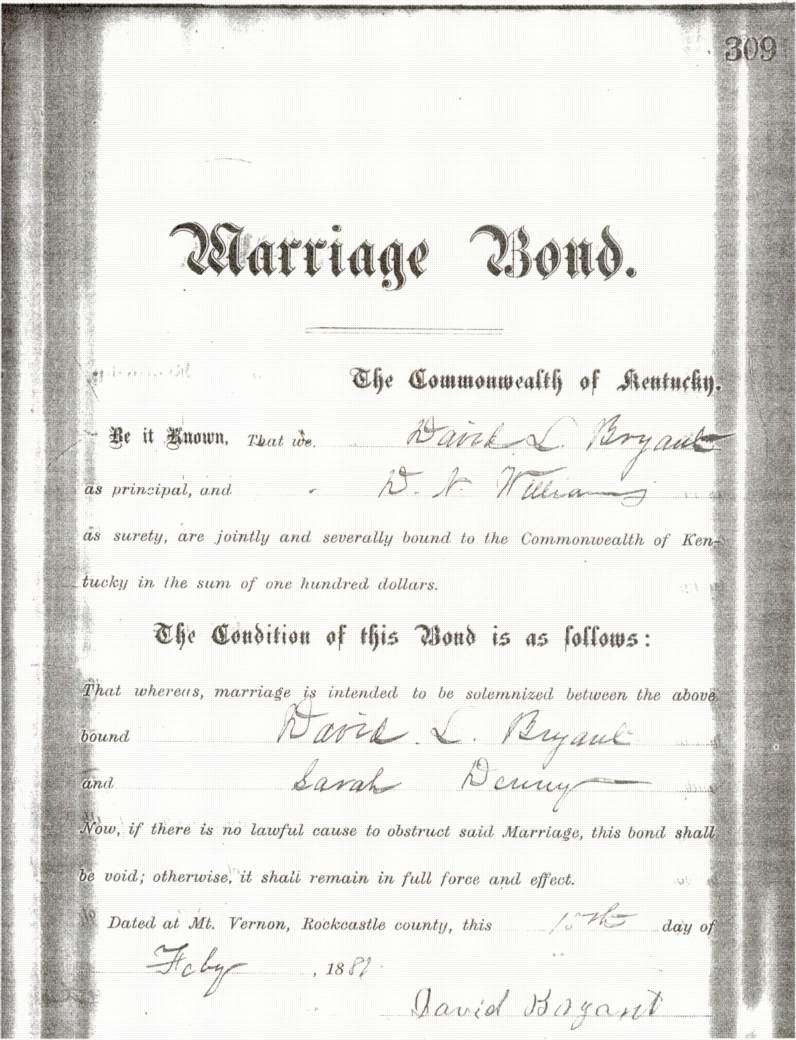 309
Marriage Bond.
The Commonwealth of Kentucky.
Be it Known, That we, David L. Bryant
as principal, and D. N. Williams
as surety, are jointly and severally bound to the Commonwealth of Ken-
tucky in the sum of one hundred dollars.
The Condition of this Bond is as follows:
That whereas, marriage is intended to be solemnized between the above
bound David L. Bryant
and Sarah Denny
Now, if there is no lawful cause to obstruct said Marriage, this bond shall
be void; otherwise, it shall remain in full force and effect.
Dated at Mt. Vernon, Rockcastle county, this day of
Feby , 188
David Bryant